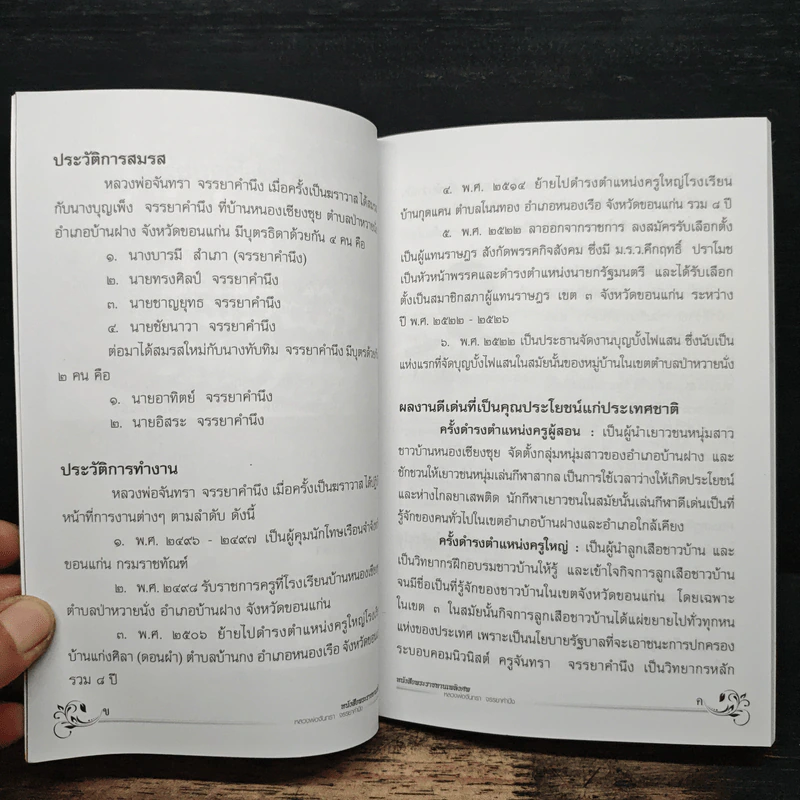 ประวัติการสมรส
หลวงพ่อจันทรา จรรยาคำนึง เมื่อครั้งเป็นฆราวาส
กับนางบุญเพ็ง จรรยาคำนึง ที่บ้านหนองเซียงซุย ตำบลป่าหวายนั่ง
อำเภอบ้านฝาง จังหวัดขอนแก่น มีบุตรธิดาด้วยกัน ๔ คน คือ
๑. นางบารมี สำเภา (จรรยาคำนึง)
๒. นายทรงศิลป์ จรรยาคำนึง
๓. นายชาญยุทธ จรรยาคำนึง
๔. นายชัยนาวา จรรยาคำนึง
ต่อมาได้สมรสใหม่กับนางทับทิม จรรยาคำนึง มีบุตรด้วย
๒ คน คือ
๑. นายอาทิตย์ จรรยาคำนึง
๒. นายอิสระ จรรยาคำนึง
ประวัติการทำงาน
หลวงพ่อจันทรา จรรยาคำนึง เมื่อครั้งเป็นฆราวาส
หน้าที่การงานต่างๆ ตามลำดับ ดังนี้
๑. พ.ศ. ๒๔๙๖ - ๒๔๙๗ เป็นผู้คุมนักโทษเรือนจำ
ขอนแก่น กรมราชทัณฑ์
๒. พ.ศ. ๒๔๙๘ รับราชการครูที่โรงเรียนบ้านหนองเซียง
ตำบลป่าหวายนั่ง อำเภอบ้านฝาง จังหวัดขอนแก่น
๓. พ.ศ. ๒๕๐๖ ย้ายไปดำรงตำแหน่งครูใหญ่
บ้านแก่งศิลา (ดอนผำ) ตำบลบ้านกง อำเภอหนองเรือ จังหวัดขอนแก่น
รวม ๘ ปี
หลวงพ่อจันทรา จรรยาคำนึง
ข
๔. พ.ศ. ๒๕๑๔ ย้ายไปดำรงตำแหน่งครูใหญ่โรงเรียน
บ้านกุดแคน ตำบลโนนทอง อำเภอหนองเรือ จังหวัดขอนแก่น รวม ๘ ปี
๕. พ.ศ. ๒๕๒๒ ลาออกจากราชการ ลงสมัครรับเลือกตั้ง
เป็นผู้แทนราษฎร สังกัดพรรคกิจสังคม ซึ่งมี ม.ร.ว.คึกฤทธิ์ ปราโมช
เป็นหัวหน้าพรรคและดำรงตำแหน่งนายกรัฐมนตรี และได้รับเลือก
ตั้งเป็นสมาชิกสภาผู้แทนราษฎร เขต ๓ จังหวัดขอนแก่น ระหว่าง
ปี พ.ศ. ๒๕๒๒ - ๒๕๒๖
๖. พ.ศ. ๒๕๒๒ เป็นประธานจัดงานบุญบั้งไฟแสน ซึ่งนับเป็น
แห่งแรกที่จัดบุญบั้งไฟแสนในสมัยนั้นของหมู่บ้านในเขตตำบลป่าหวายนั่ง
ผลงานดีเด่นที่เป็นคุณประโยชน์แก่ประเทศชาติ
ครั้งดำรงตำแหน่งครูผู้สอน : เป็นผู้นำเยาวชนหนุ่มสาว
ชาวบ้านหนองเซียงซุย จัดตั้งกลุ่มหนุ่มสาวของอำเภอบ้านฝาง และ
ชักชวนให้เยาวชนหนุ่มเล่นกีฬาสากล เป็นการใช้เวลาว่างให้เกิดประโยชน์
และห่างไกลยาเสพติด นักกีฬาเยาวชนในสมัยนั้นเล่นกีฬาดีเด่นเป็นที่
รู้จักของคนทั่วไปในเขตอำเภอบ้านฝางและอำเภอใกล้เคียง
ครั้งดำรงตำแหน่งครูใหญ่ : เป็นผู้นำลูกเสือชาวบ้าน และ
เป็นวิทยากรฝึกอบรมชาวบ้านให้รู้ และเข้าใจกิจการลูกเสือชาวบ้าน
จนมีชื่อเป็นที่รู้จักของชาวบ้านในเขตจังหวัดขอนแก่น โดยเฉพาะ
ในเขต ๓ ในสมัยนั้นกิจการลูกเสือชาวบ้านได้แผ่ขยายไปทั่วทุกหน
แห่งของประเทศ เพราะเป็นนโยบายรัฐบาลที่จะเอาชนะการปกครอง
ระบอบคอมนิวนิสต์ ครูจันทรา จรรยาคำนึง เป็นวิทยากรหลัก
หนังสือพระราชทานเพลิงศพ
หลวงพ่อจันทรา จรรยาคำนึง
ค